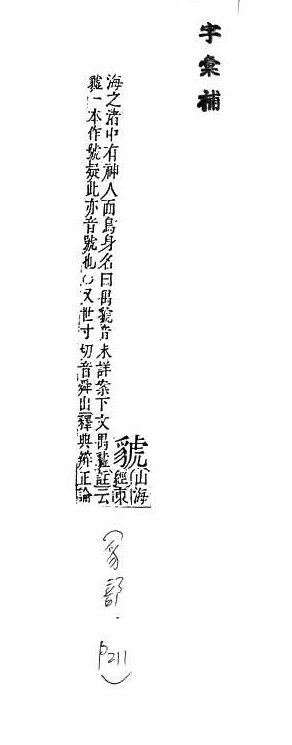 字彙補
䝞
山海
經東
海之渚中有神人而鳥身名曰禺䝞音未詳案下文禺䝞註云
䝞一本作號疑此亦音號也○又世寸切音舜出釋典辨正論
(豸部.P211)